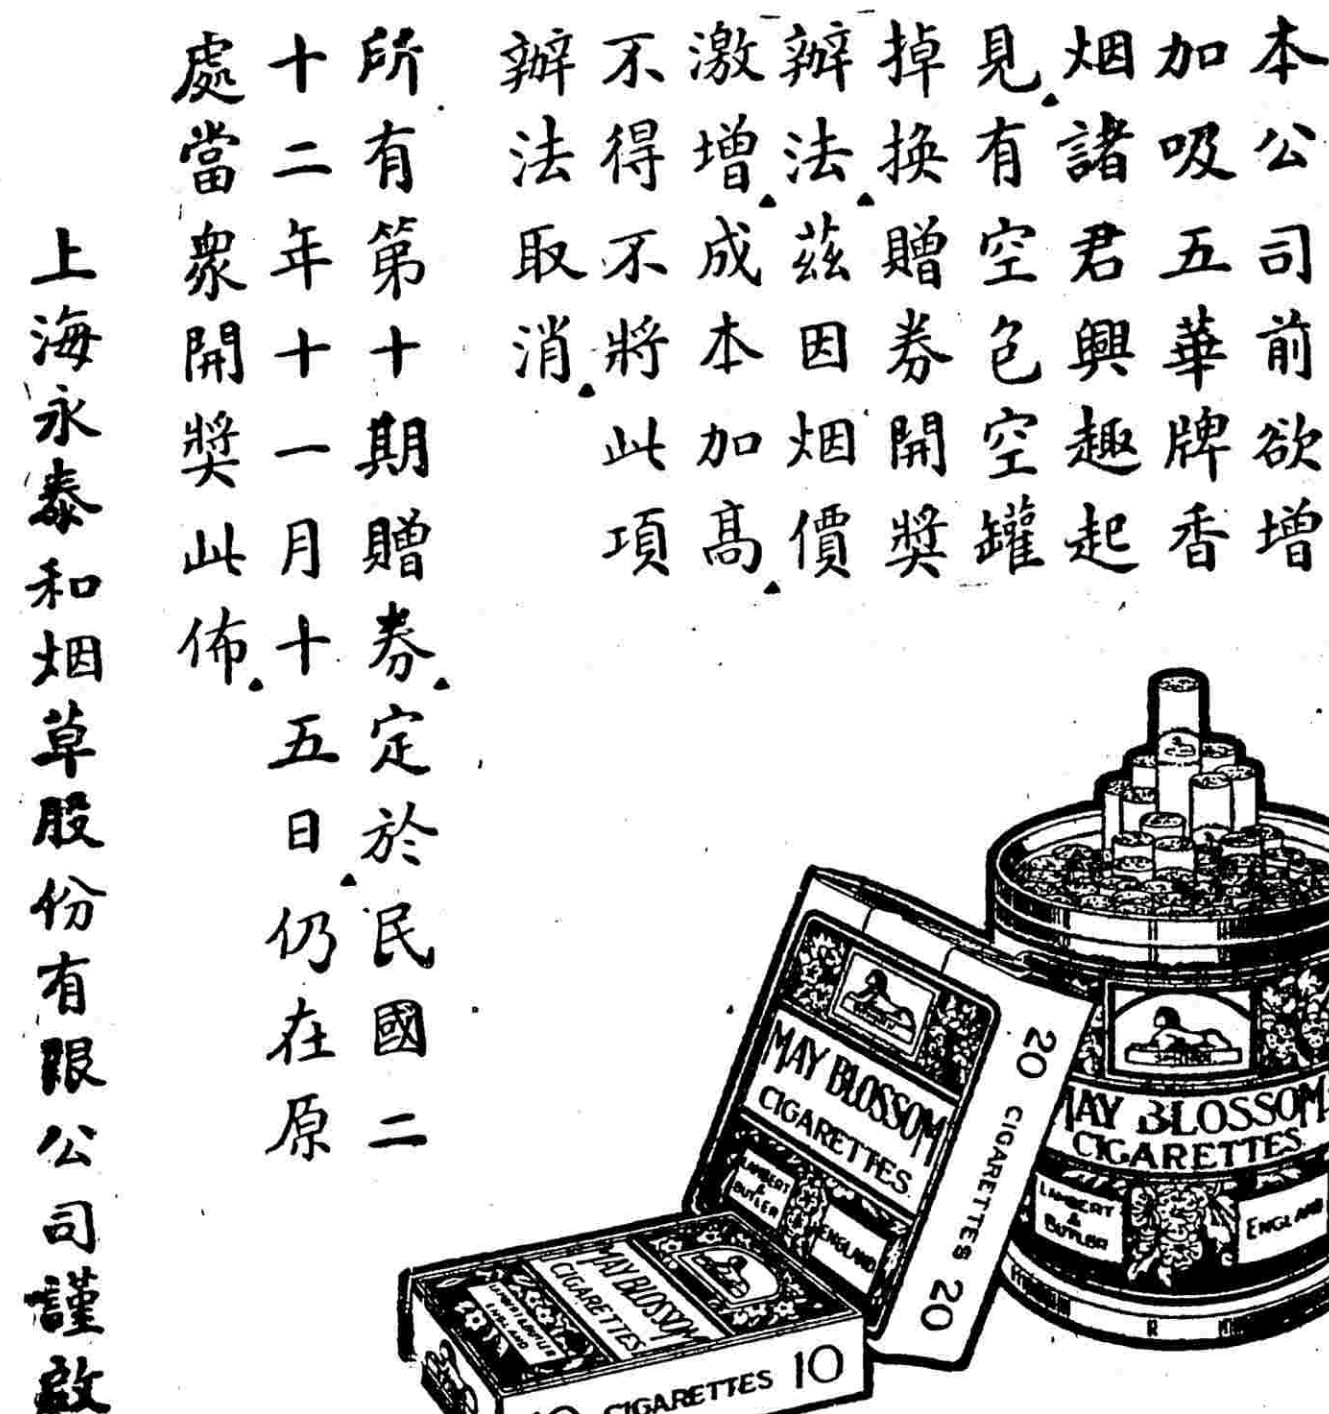 本公司前欲增
加吸五華牌香
烟諸君興趣起
見有空包空罐
掉換贈券開獎
辦法茲因烟價
激增成本加高
不得不將此項
辦法取消
所有第十期贈券定於民國二
十二年十一月十五日仍在原
處當衆開獎此佈
上海永泰和烟草股份有限公司謹啟
MAY BLOSSOM
CIGARETTES
LAMBERT
&
BUTLER
ENGLAND
20 CIGARETTES 20
MAY BLOSSOM
CIGARETTES
LAMBERT
&
BUTLER
ENGLAND
MAY BLOSSOM
CIGARETTES
LAMBERT & BUTLER
ENGLAND
10 CIGARETTES 10